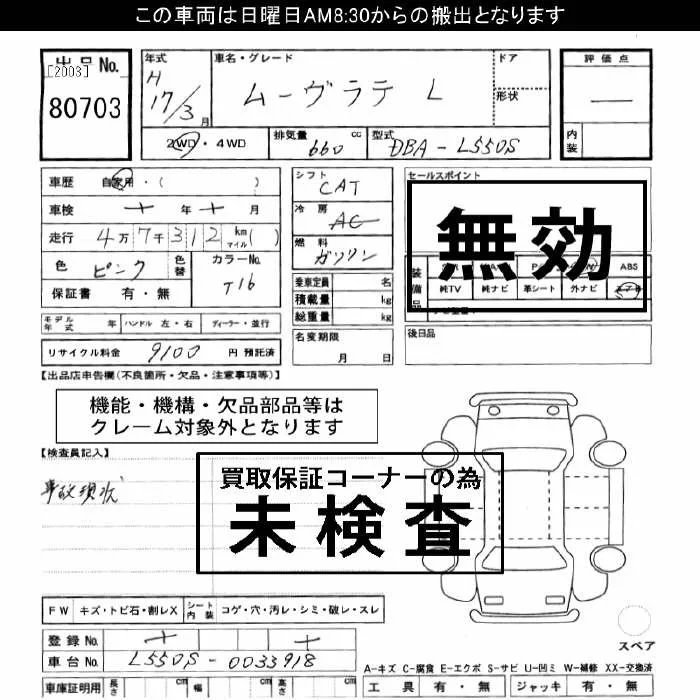 この車両は日曜日AM8:30からの搬出となります
出品No.
[2003]
80703
年式 H 17/3月
車名・グレード ムーヴラテ L
ドア
形状
評価点 —
内装
2WD・4WD
排気量 660 cc
型式 DBA-L550S
車歴 自家用・( )
車検 年 月
走行 4万7千312 km マイル( )
色 ピンク 色替
カラーNo. T16
保証書 有・無
シフト CAT
冷房 AC
燃料 ガソリン
乗車定員 名
積載量 kg
総重量 kg
セールスポイント
無効
装備品
ABS
純TV 純ナビ 革シート 外ナビ
後日品
モデル年式 年 ハンドル 左・右 ディーラー・並行
名変期限 月 日
リサイクル料金 9100 円 預託済
【出品店申告欄(不良箇所・欠品・注意事項等)】
機能・機構・欠品部品等は
クレーム対象外となります
【検査員記入】
事故現状
買取保証コーナーの為
未検査
FW キズ・トビ石・割レX シート内装 コゲ・穴・汚レ・シミ・破レ・スレ
登録No.
車台No. L550S-0033918
車庫証明用 長さ cm 幅 cm 高さ cm
スペア
A-キズ C-腐食 E-エクボ S-サビ U-凹ミ W-補修 XX-交換済
工具 有・無 ジャッキ 有・無